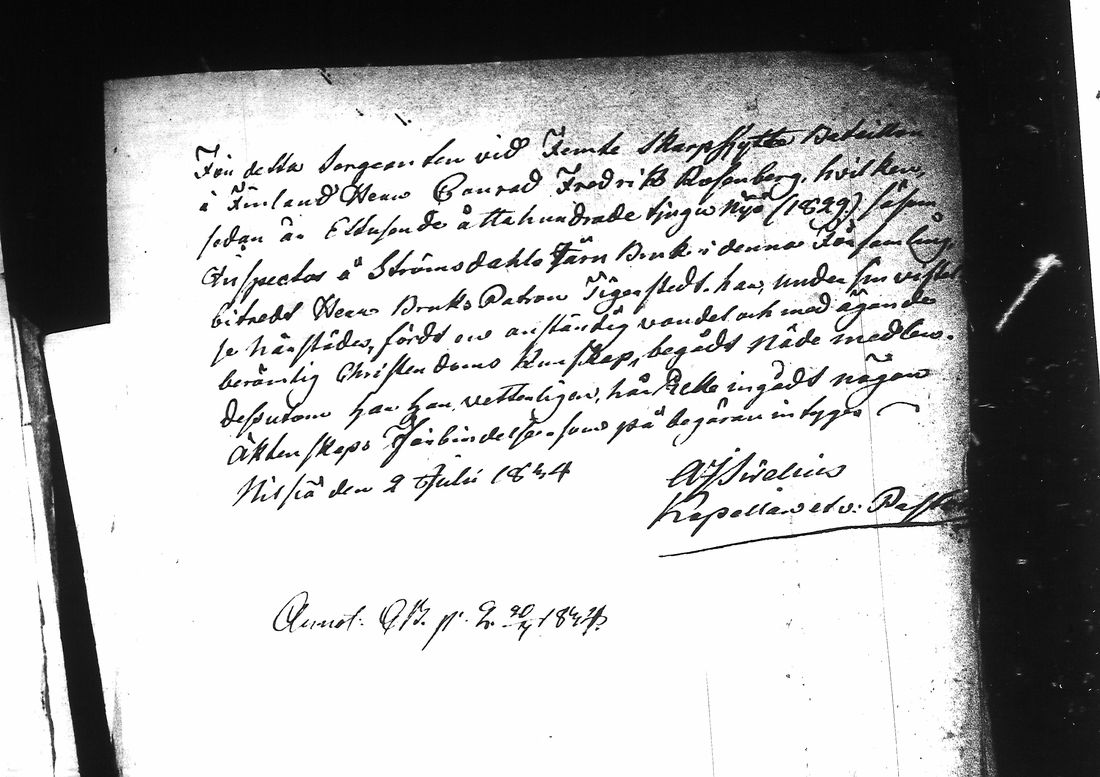 Förr detta Sergeanten vid Femte Skarpskytte Bataillon
i Finland Herr Conrad Fredrik Rosenberg, hvilken,
sedan år Ettusende åttahundrade tjugu Nijo (1829) såsom
Inspector å Strömsdahls Järn Bruk i denna Församling,
biträdt Herr Bruks Patron Tigerstedt, har, under sin vistel
se härstädes, fördt en anständig vandel och med ägande
berömlig Christendoms kunskap, begådt Nåde medlen.
dessutom har han, vetterligen, här Icke ingådt någon
Äktenskaps Förbindelse, som på begäran intygas
Nilsiä den 2 Julii 1834
Sirelius
Kapellan et v: Pastor
Annot. p. 2 1834.